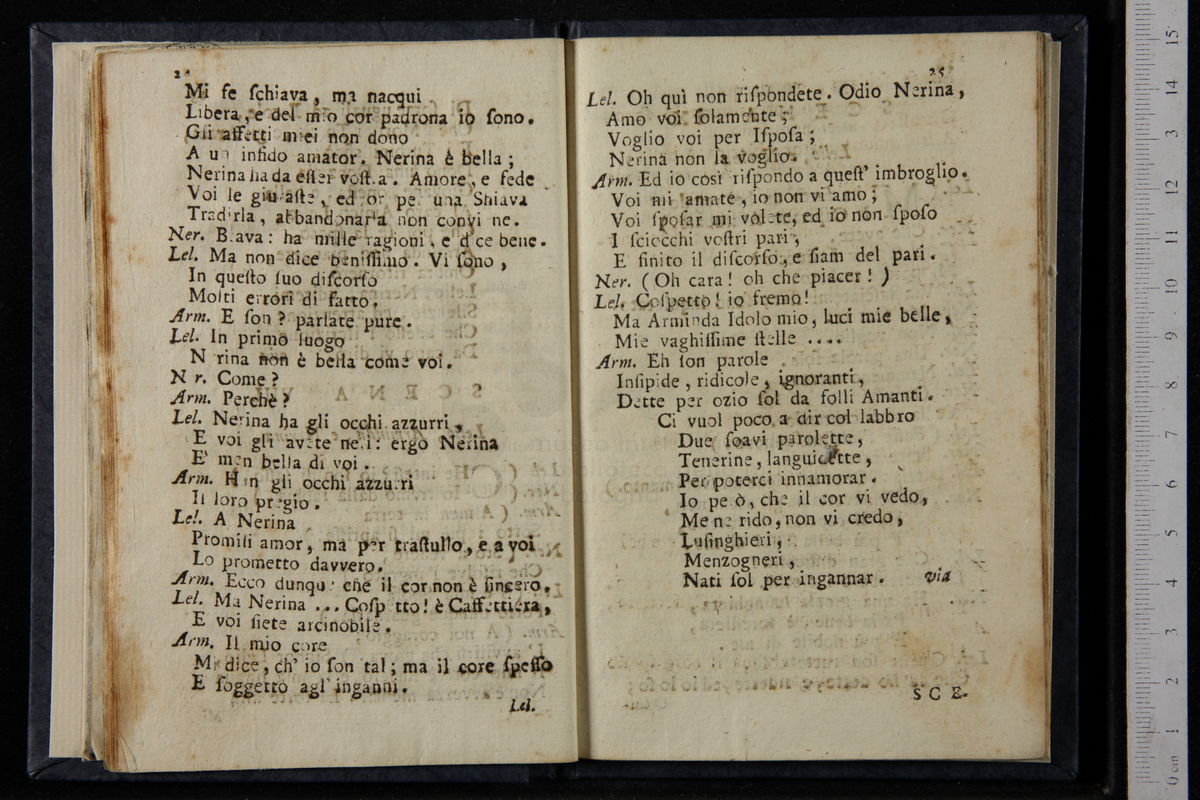 Mi fe ſchiava, ma nacqui
Libera, e del mio cor padrona io ſono.
Gli affetti miei non dono
A un infido amator. Nerina è bella;
Nerina ha da eſſer voſt.a. Amore, e fede
Voi le giuraſte, ed or per una Shiava
Tradirla, abbandonarla non convi ne.
Ner. Brava: ha mille ragioni, e dice bene.
Lel. Ma non dice beniſſimo. Vi ſono,
In queſto ſuo diſcorſo
Molti errori di fatto.
Arm. E ſon? parlate pure.
Lel. In primo luogo
N rina non è bella come voi.
N r. Come?
Arm. Perchè?
Lel. Nerina ha gli occhi azzurri,
E voi gli avete neri: ergo Nerina
E' men bella di voi.
Arm. H n gli occhi azzurri
Il loro pregio.
Lel. A Nerina
Promiſi amor, ma per traſtullo, e a voi
Lo prometto davvero.
Arm. Ecco dunque che il cor non è ſincero.
Lel. Ma Nerina ... Coſp tto! è Caffettiera,
E voi ſiete arcinobile.
Arm. Il mio core
Mi dice, ch' io ſon tal; ma il core ſpeſſo
E ſoggetto agl' inganni.
Lel.
25
Lel. Oh quì non riſpondete. Odio Nerina,
Amo voi ſolamente;
Voglio voi per Iſpoſa;
Nerina non la voglio.
Arm. Ed io così riſpondo a queſt' imbroglio.
Voi mi amate, io non vi amo;
Voi ſpoſar mi volete, ed io non ſpoſo
I ſciocchi voſtri pari,
E finito il diſcorſo, e ſiam del pari.
Ner. (Oh cara! oh che piacer!)
Lel. Coſpetto! io fremo!
Ma Arminda Idolo mio, luci mie belle,
Mie vaghiſſime ſtelle ....
Arm. Eh ſon parole
Inſipide, ridicole, ignoranti,
Dette per ozio ſol da folli Amanti.
Ci vuol poco a dir col labbro
Due ſoavi parolette,
Tenerine, languidette,
Per poterci innamorar.
Io però, che il cor vi vedo,
Me ne rido, non vi credo,
Luſinghieri,
Menzogneri,
Nati ſol per ingannar. via
SCE-
0 cm 1 2 3 4 5 6 7 8 9 10 11 12 13 14 15